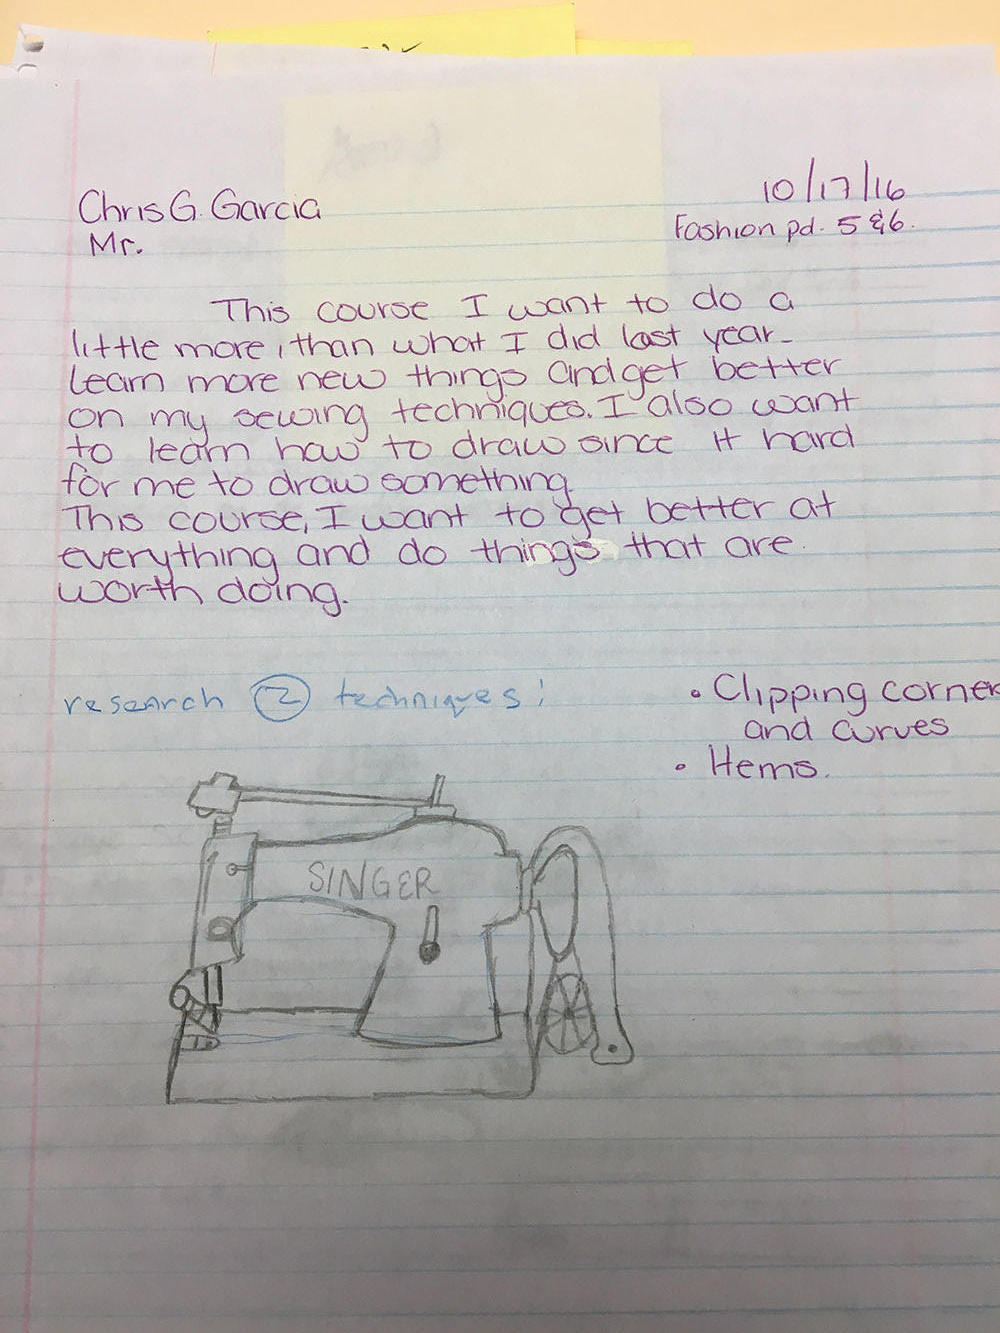 Chris G. Garcia
10/17/16
Mr.
Fashion pd. 5 & 6.
This course I want to do a
little more, than what I did last year.
Learn more new things and get better
on my sewing techniques. I also want
to learn how to draw since it hard
for me to draw something
This course, I want to get better at
everything and do things that are
worth doing.
research 2 techniques:
• Clipping corner
and curves
• Hems.
SINGER